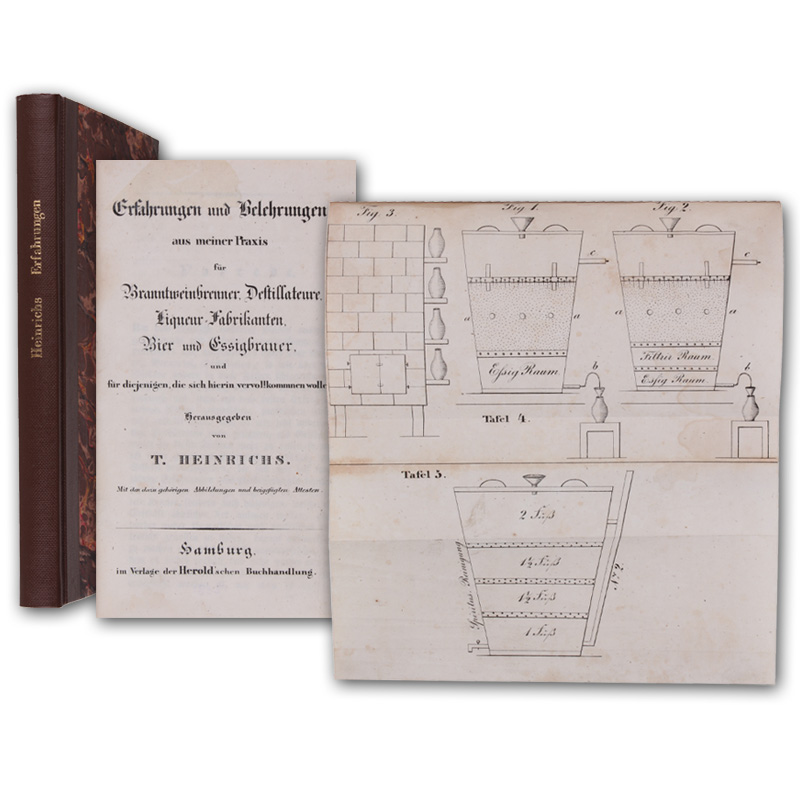 Heinrichs Erfahrungen
Erfahrungen und Belehrungen
aus meiner Praxis
für
Branntweinbrenner, Destillateure,
Liqueur-Fabrikanten,
Bier und Essigbrauer,
und
für diejenigen, die sich hierin vervollkommnen wolle
Herausgegeben
von
T. HEINRICHS.
Mit den dazu gehörigen Abbildungen und beigefügten Attesten.
Hamburg,
im Verlage der Herold'schen Buchhandlung.
Fig 3.
Fig. 1.
Fig. 2.
c
c
a
a
a
a
Filtrir Raum
Eßig Raum
b
Eßig Raum
b
Tafel 4.
Tafel 5.
2 Fuß
1½ Fuß
1½ Fuß
1 Fuß
Spiritus-Reinigung
a